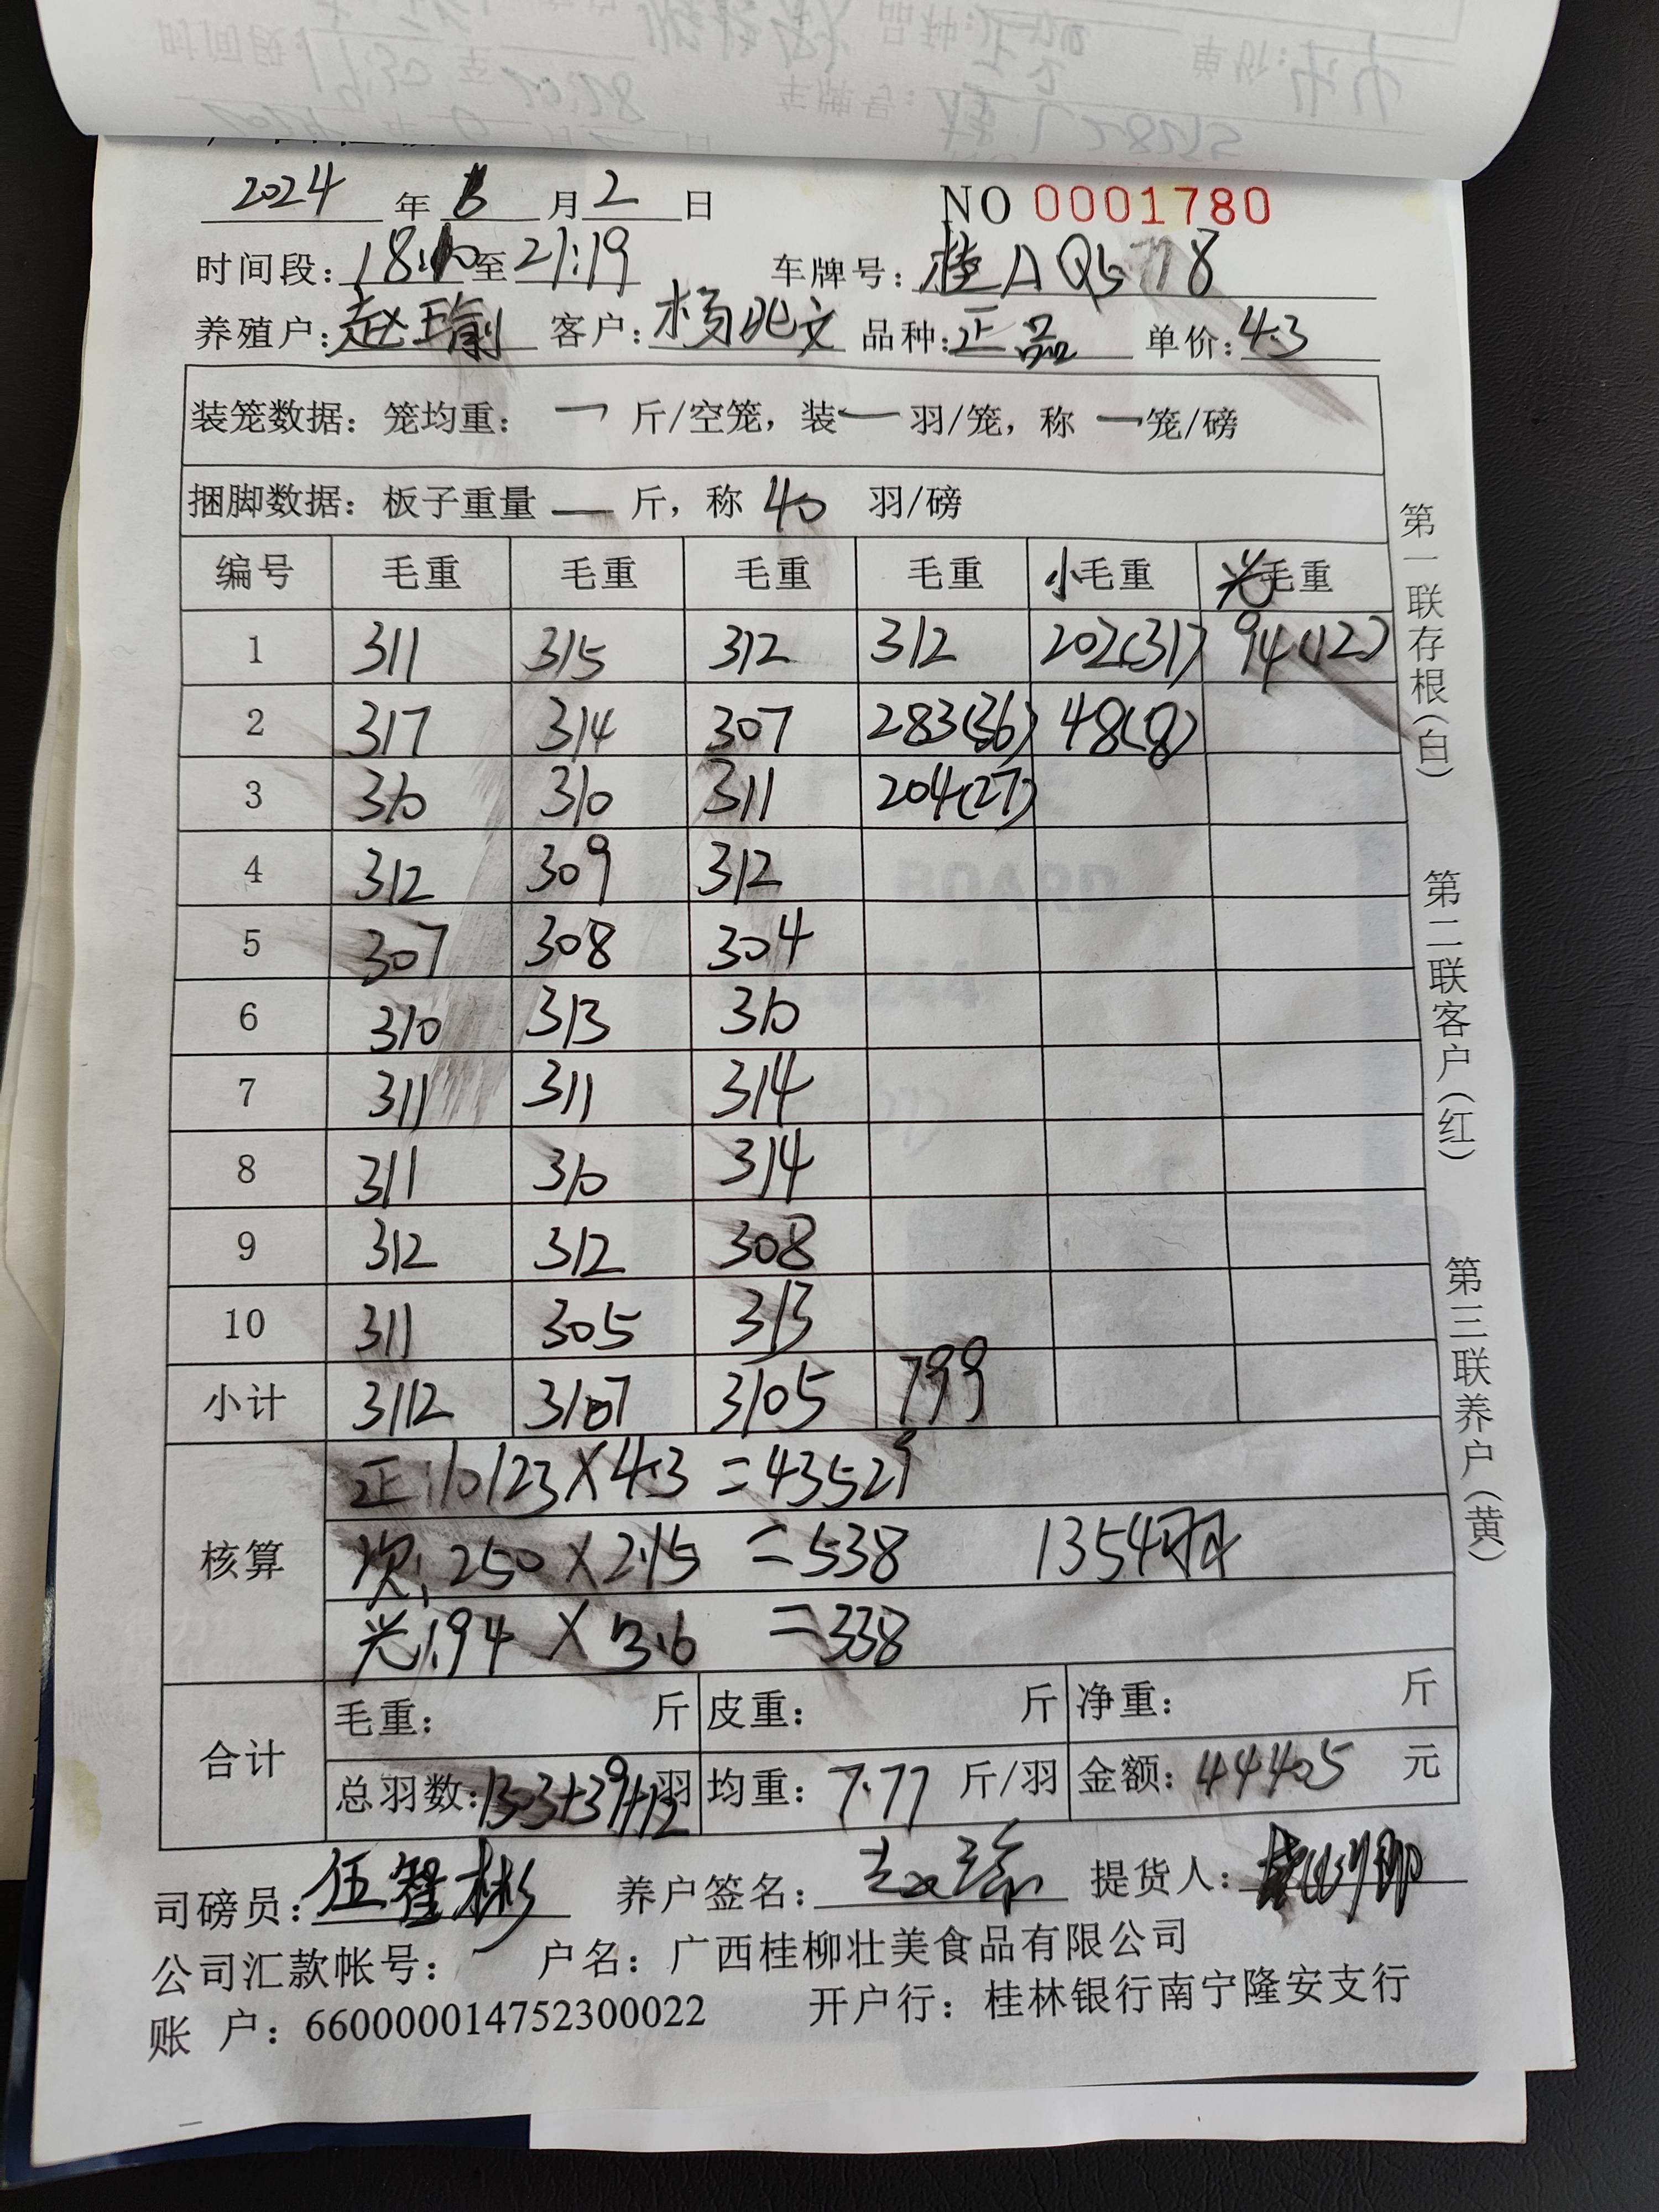 2024 年 8 月 2 日 NO 0001780
时间段: 18:10 至 21:19 车牌号: 桂A Q5718
养殖户: 赵瑜 客户: 杨兆文 品种: 正品 单价: 4.3
装笼数据: 笼均重: 一 斤/空笼, 装 一 羽/笼, 称 一 笼/磅
捆脚数据: 板子重量 — 斤, 称 40 羽/磅
编号 毛重 毛重 毛重 毛重 小毛重 光毛重
1 311 315 312 312 202(31) 94(12)
2 317 314 307 283(36) 48(8)
3 310 310 311 204(27)
4 312 309 312
5 307 308 304
6 310 313 310
7 311 311 314
8 311 310 314
9 312 312 308
10 311 305 313
小计 3112 3107 3105 799
核算 正:10123×4.3 =43529
次:250×2.15 =538 1354羽
光:94 × 3.6 =338
合计 毛重: 斤 皮重: 斤 净重: 斤
总羽数: 1303+39+12 羽 均重: 7.77 斤/羽 金额: 44405 元
司磅员: 伍智彬 养户签名: 赵瑜 提货人:
公司汇款帐号: 户名: 广西桂柳壮美食品有限公司
账 户: 660000014752300022 开户行: 桂林银行南宁隆安支行
第一联存根(白) 第二联客户(红) 第三联养户(黄)